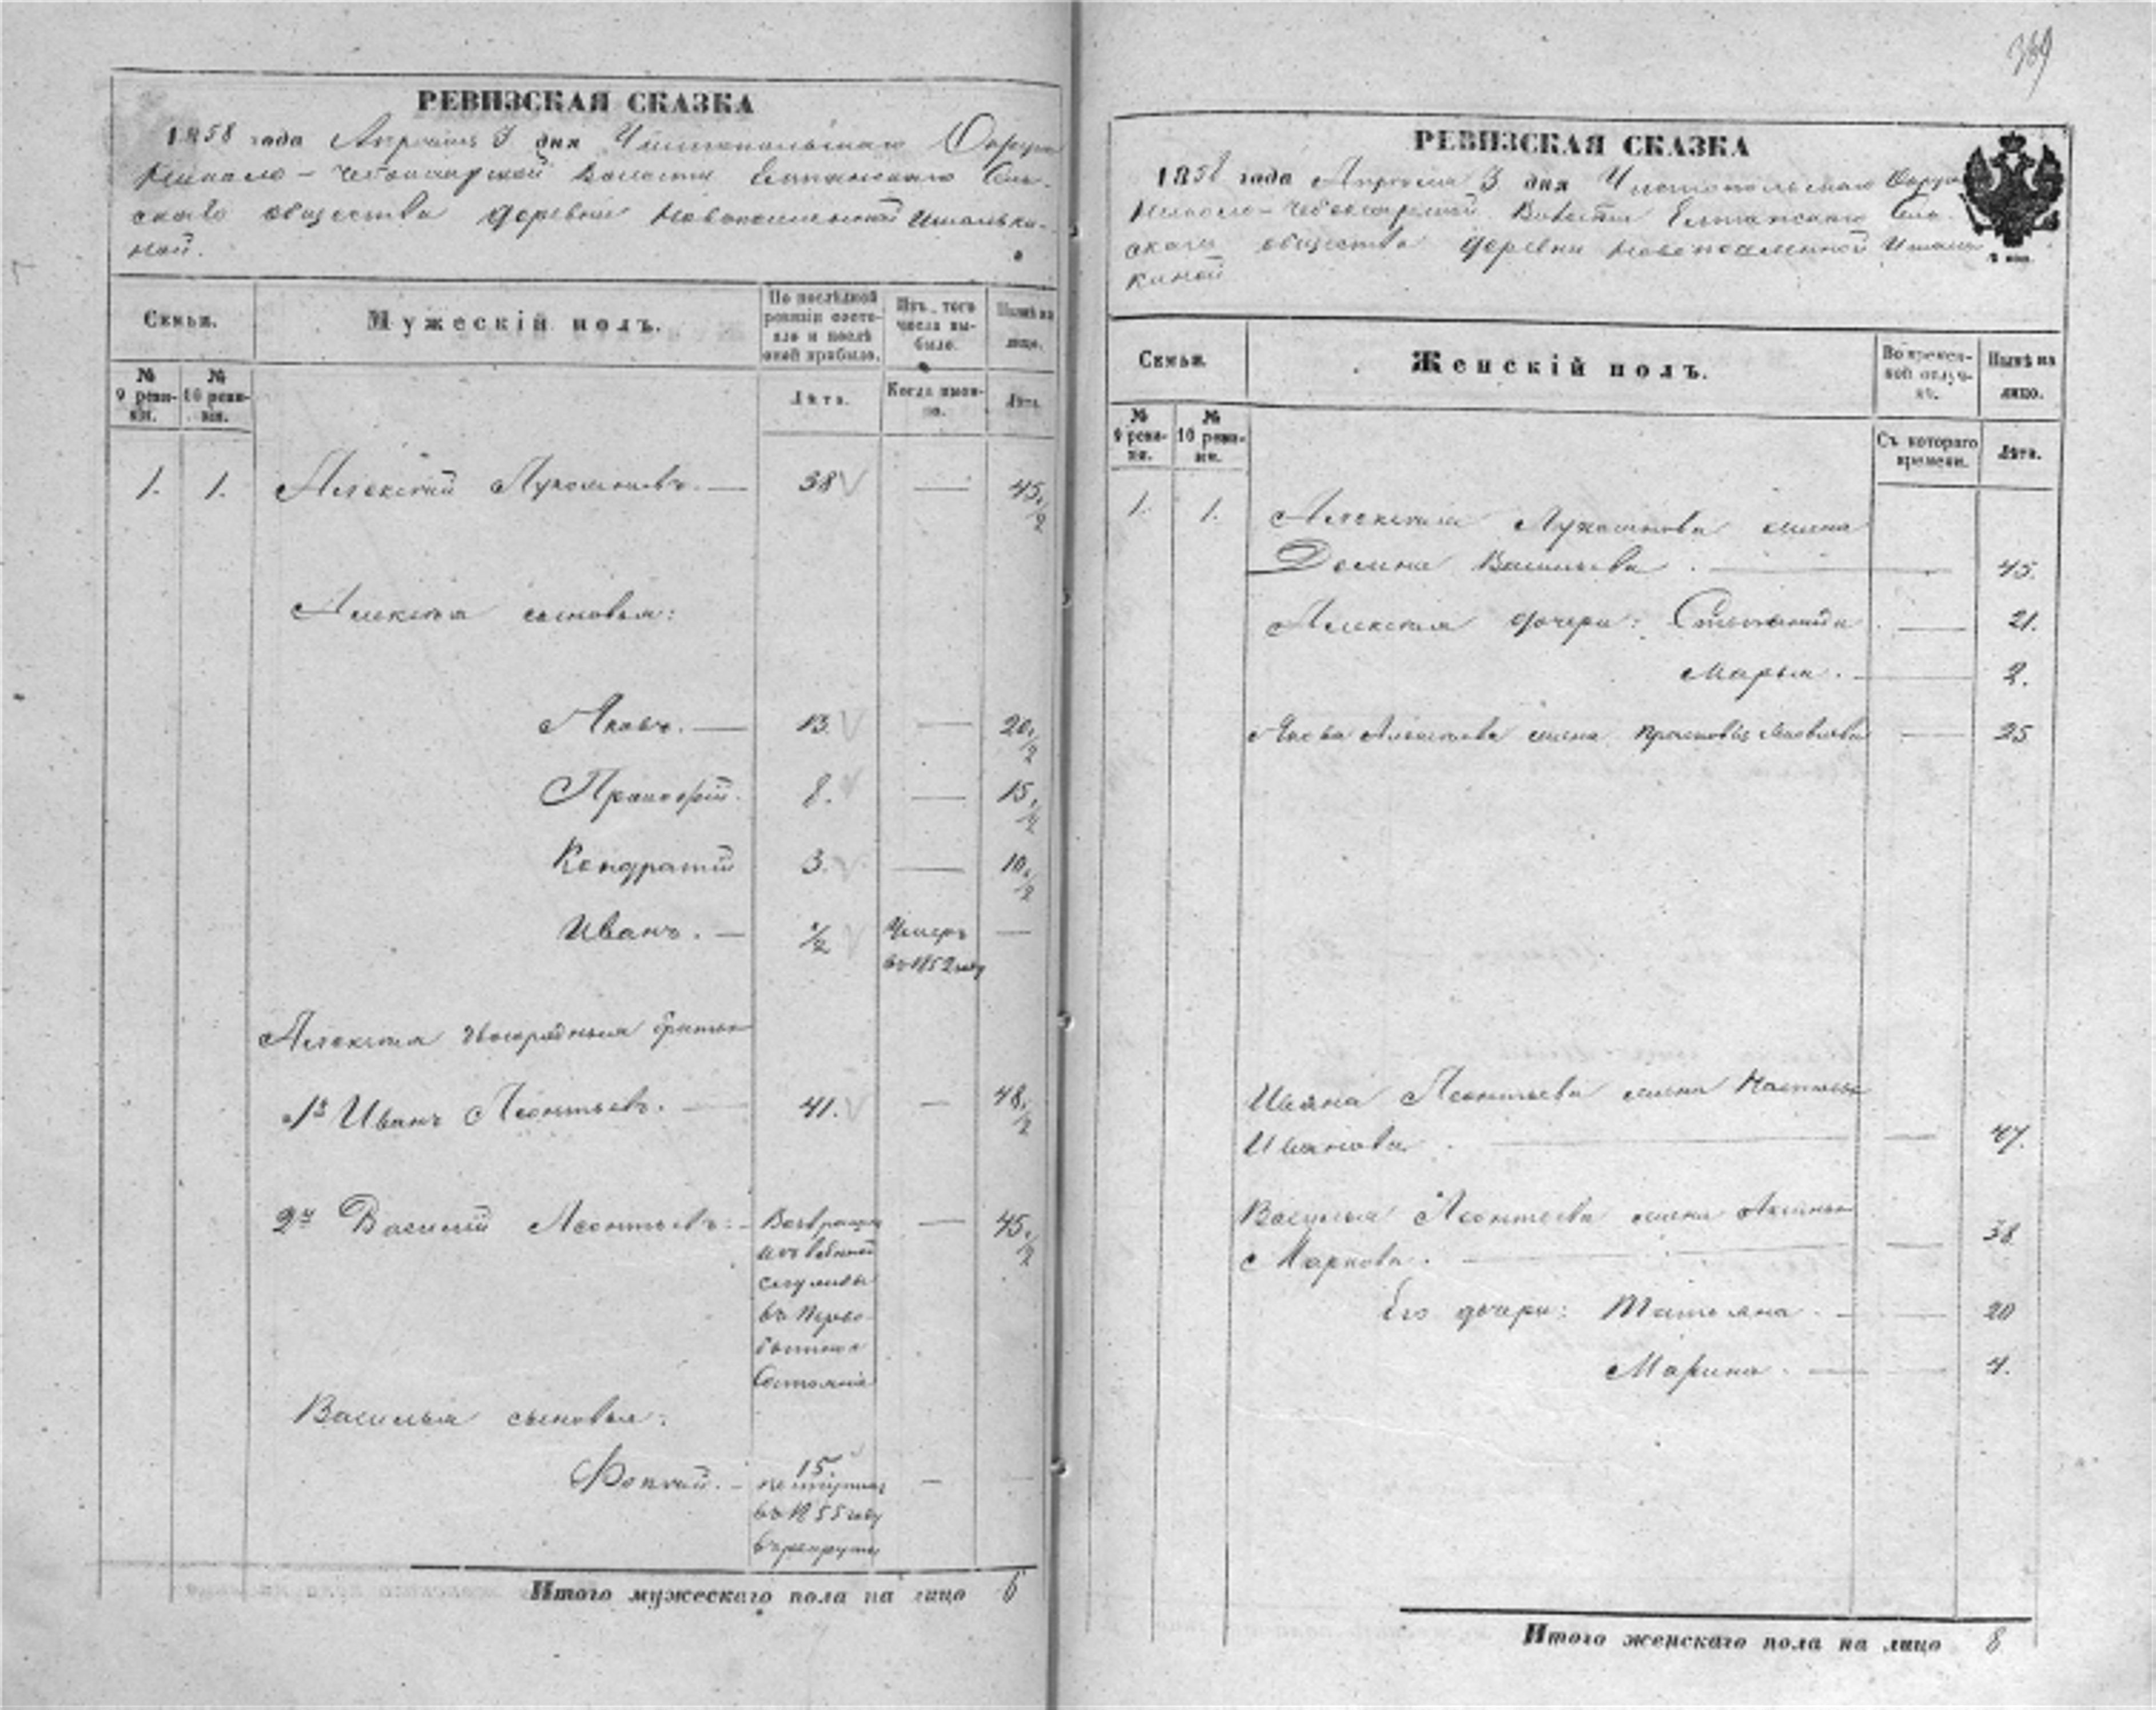 389
РЕВИЗСКАЯ СКАЗКА
1858 года Апреля 3 дня Чистопольскаго Округа
Чебоксарской Волости Елтанскаго Сель-
скаго общества деревни Новопоселенной Ишалька-
ной.
Семьи.
Мужескій полъ.
По послѣдней ревизіи состо-яло и послѣ оной прибыло.
Изъ того числа вы-было.
Нынѣ на лицо.
№ 9 реви-зіи.
№ 10 реви-зіи.
Лѣта.
Когда имен-но.
Лѣта.
1. 1. Алексѣй Лукояновъ. — 38 — 45 1/2
Алексѣя сыновья:
Яковъ. — 13. — 20 1/2
Прокофій. 8. — 15 1/2
Кондратій 3. — 10 1/2
Иванъ. — 1/2 Умеръ —
въ 1852 году
Алексѣя двоюродныя братья
1й Иванъ Леонтьевъ. — 41. — 48 1/2
2й Василій Леонтьевъ: - Возвращенъ — 45 1/2
изъ военной
службы
въ перво-
бытное
состояніе
Василья сыновья:
15.
Фокѣй. - поступил —
въ 1855 году
въ рекруты
Итого мужескаго пола на лицо 6
РЕВИЗСКАЯ СКАЗКА
1858 года Апреля 3 дня Чистопольскаго Округа
Чебоксарской Волости Елтанскаго Сель-
скаго общества деревни Новопоселенной Ишаль-
киной
Семьи.
Женскій полъ.
Во времен-ной отлуч-кѣ.
Нынѣ на лицо.
№ 9 реви-зіи.
№ 10 реви-зіи.
Съ котораго времени.
Лѣта.
1. 1. Алексѣя Лукоянова жена
Домна Васильева. — 45.
Алексѣя дочери: Степанида — 21.
Марья. — 2.
Якова Алексѣева жена Прасковья Яковлева — 25
Ивана Леонтьева жена Настасья
Иванова. — 47.
Василья Леонтьева жена Аксинья
Маркова. — 38.
Его дочери: Татьяна. — 20
Марина. — 4.
Итого женскаго пола на лицо 8